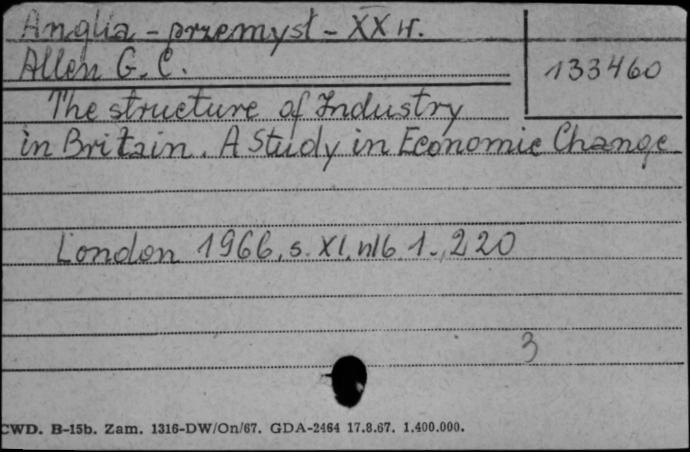 Anglia - przemysł - XX w.
Allen G. C.
133460
The structure of Industry
in Britain. A Study in Economic Change
London 1966, s. XI, nlb. 1., 220
3
CWD. B-15b. Zam. 1316-DW/On/67. GDA-2464 17.8.67. 1.400.000.